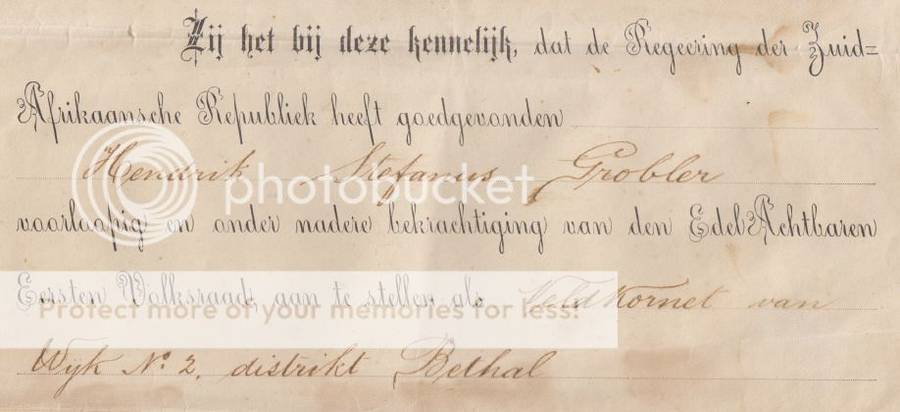 Zij het bij deze kennelijk, dat de Regeering der Zuid=
Afrikaansche Republiek heeft goedgevonden
Hendrik Stefanus Grobler
photobucket
voorloopig en onder nadere bekrachtiging van den EdelAchtbaren
Eersten Volksraad, aan te stellen als Veldkornet van
Protect more of your memories for less!
Wyk No. 2, distrikt Bethal